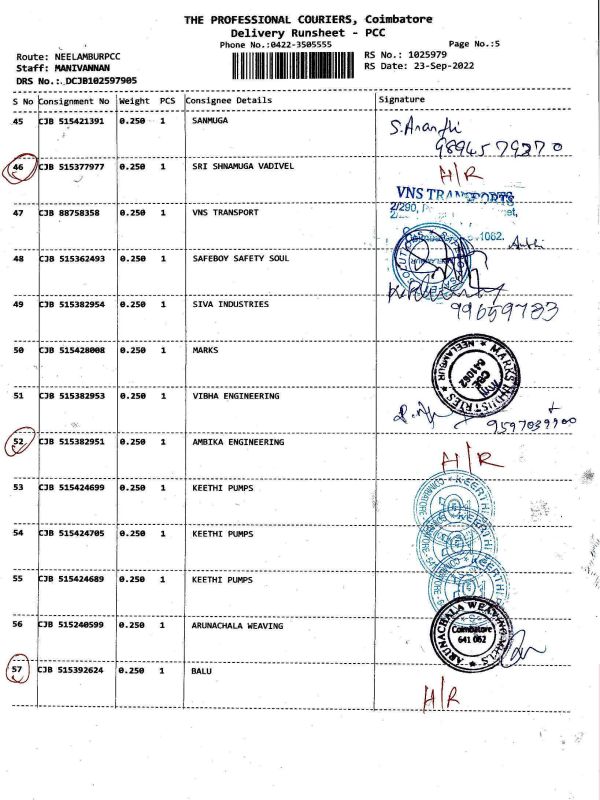 THE PROFESSIONAL COURIERS, Coimbatore
Delivery Runsheet - PCC
Phone No.:0422-3505555
Page No.:5
Route: NEELAMBURPCC
RS No.: 1025979
Staff: MANIVANNAN
RS Date: 23-Sep-2022
DRS No.:.DCJB102597905
S No Consignment No Weight PCS Consignee Details Signature
45 CJB 515421391 0.250 1 SANMUGA
S.Ananthi
9894579270
46 CJB 515377977 0.250 1 SRI SHNAMUGA VADIVEL H/R
VNS TRANSPORTS
2/290,
47 CJB 88758358 0.250 1 VNS TRANSPORT
1062.
48 CJB 515362493 0.250 1 SAFEBOY SAFETY SOUL
49 CJB 515382954 0.250 1 SIVA INDUSTRIES
99659783
50 CJB 515428008 0.250 1 MARKS
MARKS INDUSTRIES * NEELAMBUR *
CBE
641062
51 CJB 515382953 0.250 1 VIBHA ENGINEERING
9597039900
52 CJB 515382951 0.250 1 AMBIKA ENGINEERING H/R
53 CJB 515424699 0.250 1 KEETHI PUMPS
KEERTHI
54 CJB 515424705 0.250 1 KEETHI PUMPS
KEERTHI
55 CJB 515424689 0.250 1 KEETHI PUMPS
56 CJB 515240599 0.250 1 ARUNACHALA WEAVING
ARUNACHALA WEAVING MILLS
Coimbatore
641 062
57 CJB 515392624 0.250 1 BALU
H/R